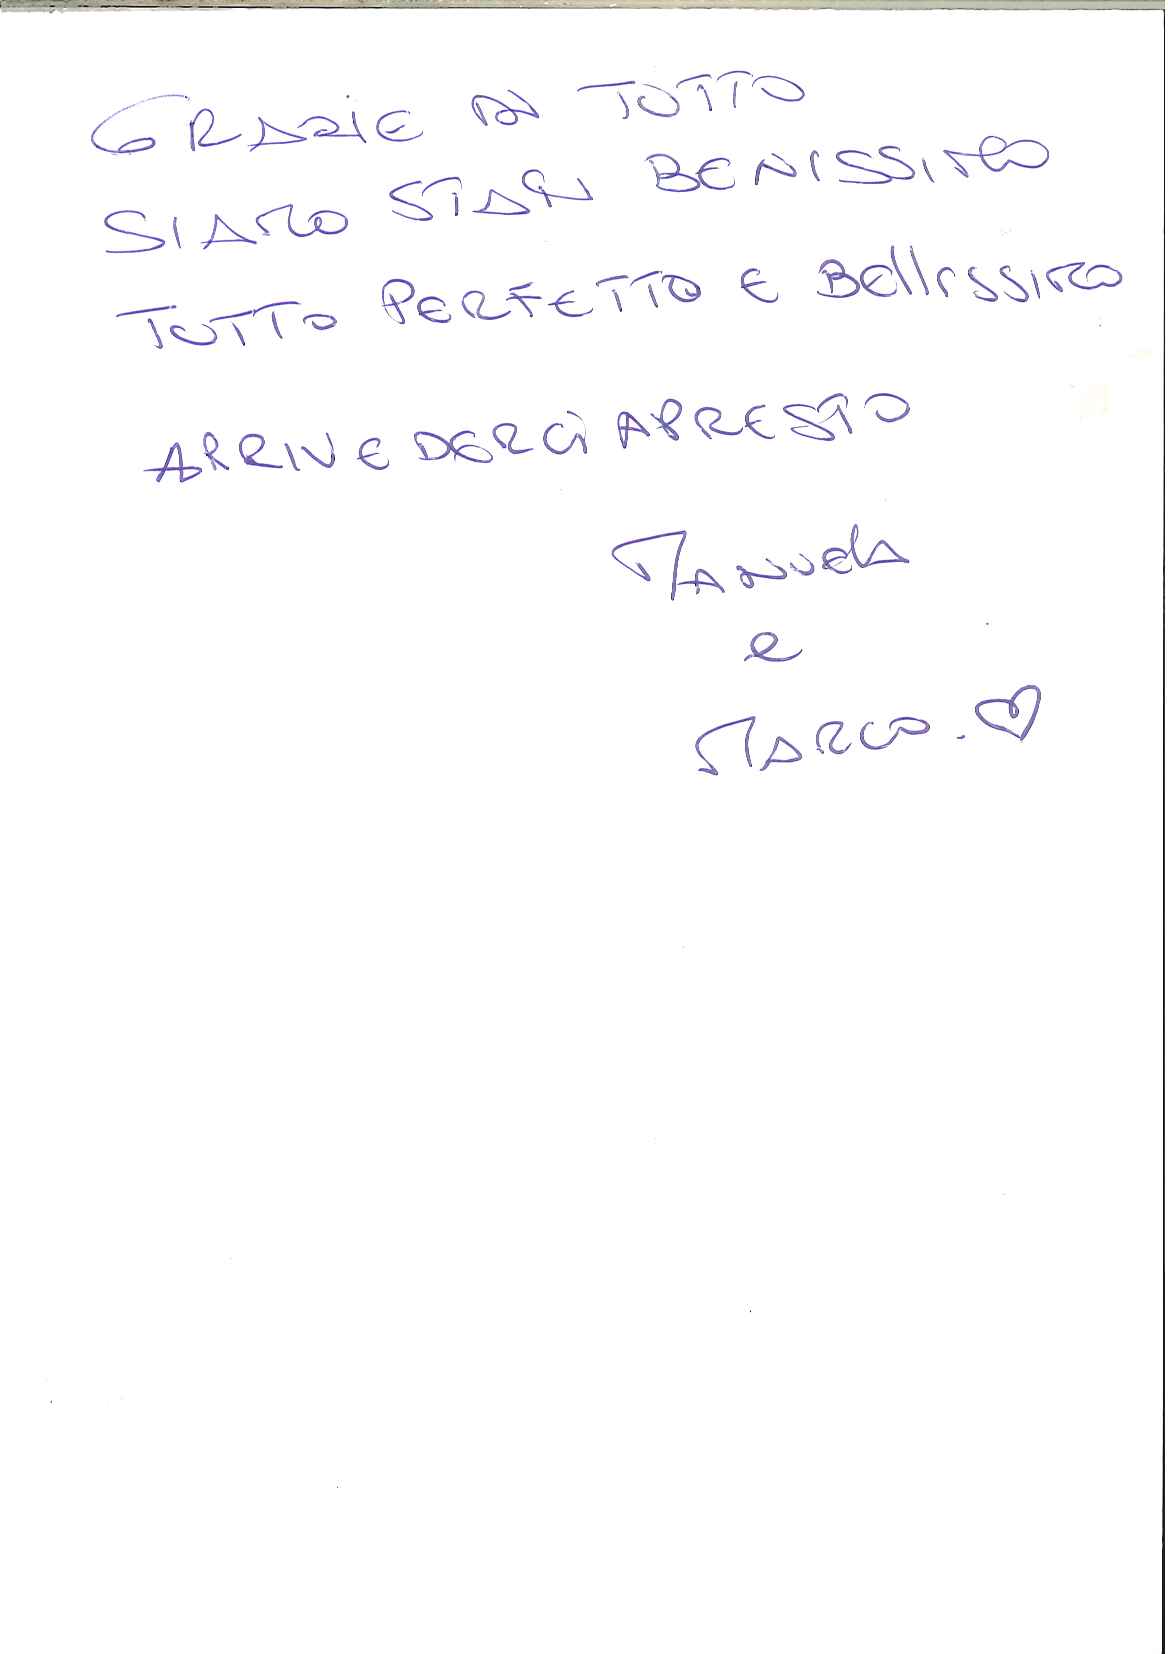 GRAZIE DI TUTTO
SIAMO STATI BENISSIMO
TUTTO PERFETTO E BELLISSIMO
ARRIVEDERCI A PRESTO
MANUELA
e
MARCO. ♡